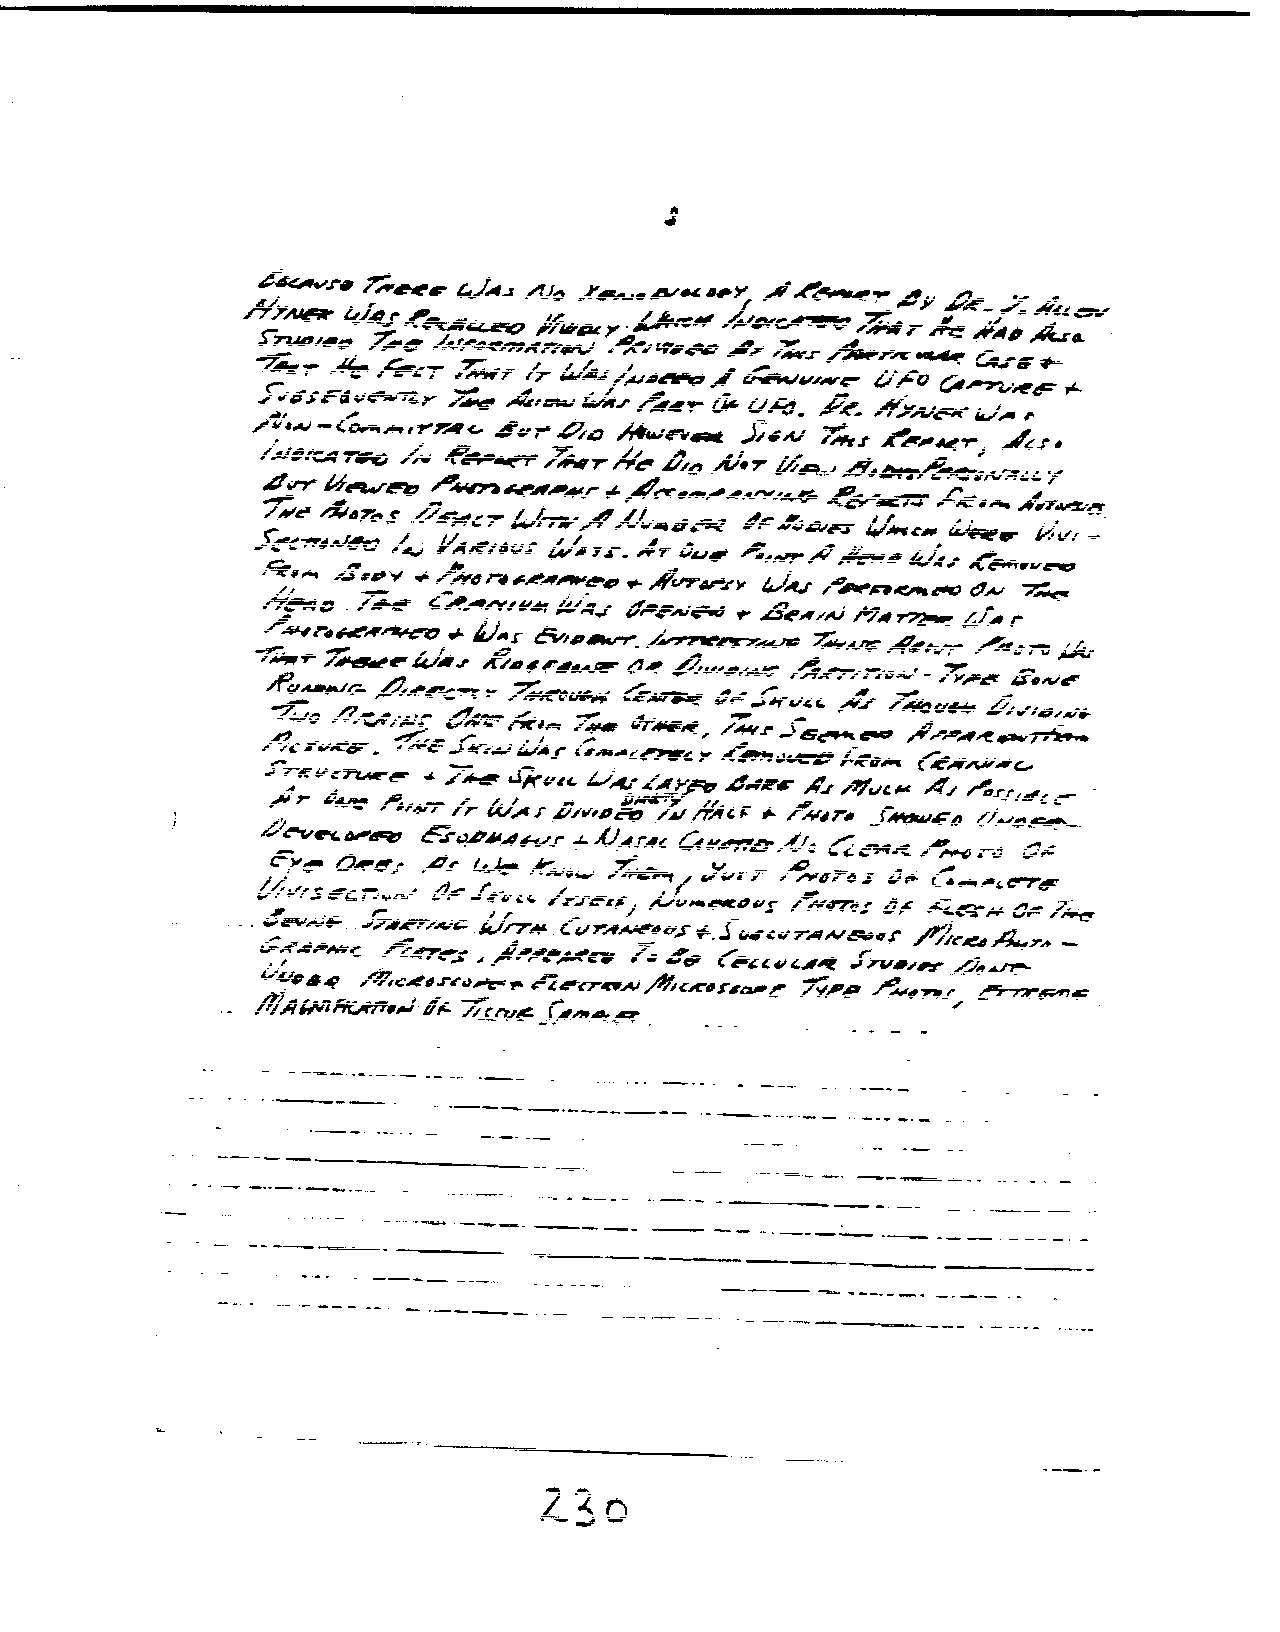 Because There Was No Technology, A Report By Dr. J. Allen
Hynek Was Which Indicated That He Had Also
Studied The Information Provided As This Particular Case +
That He Felt That It Was Indeed A Genuine UFO Capture +
Subsequently The Alien Was Part Of UFO. Dr. Hynek Was
Non-Committal But Did However Sign This Report, Also
Indicated In Report That He Did Not View Personally
But Viewed Photographs + Accompanying Reports From Autopsie
The Photos Dealt With A Number Of Bodies Which Were Vivi-
Sectioned In Various Ways. At One Point A Head Was Removed
From Body + Photographed + Autopsy Was Performed On The
Head. The Cranium Was Opened + Brain Matter Was
Photographed + Was Evident. Interesting Thing About Photo Was
That There Was Ridgebone Or Dividing Partition-Type Bone
Running Directly Through Center Of Skull As Though Dividing
Two Brains One From The Other, This Seemed Apparent From
Picture. The Skin Was Completely Removed From Cranial
Structure + The Skull Was Layed Bare As Much As Possible
At One Point It Was Divided Directly In Half + Photo Showed Under-
Developed Esophagus + Nasal No Clear Photo Of
Eye Orbs As We Know Them, Just Photos Of Complete
Vivisection Of Skull Itself, Numerous Photos Of Flesh Of The
Being Starting With Cutaneous + Subcutaneous MicroPhoto-
Graphic Plates, Appeared To Be Cellular Studies Done
Under Microscope + Electron Microscope Type Photos, Extreme
Magnification Of Tissue Samples
230